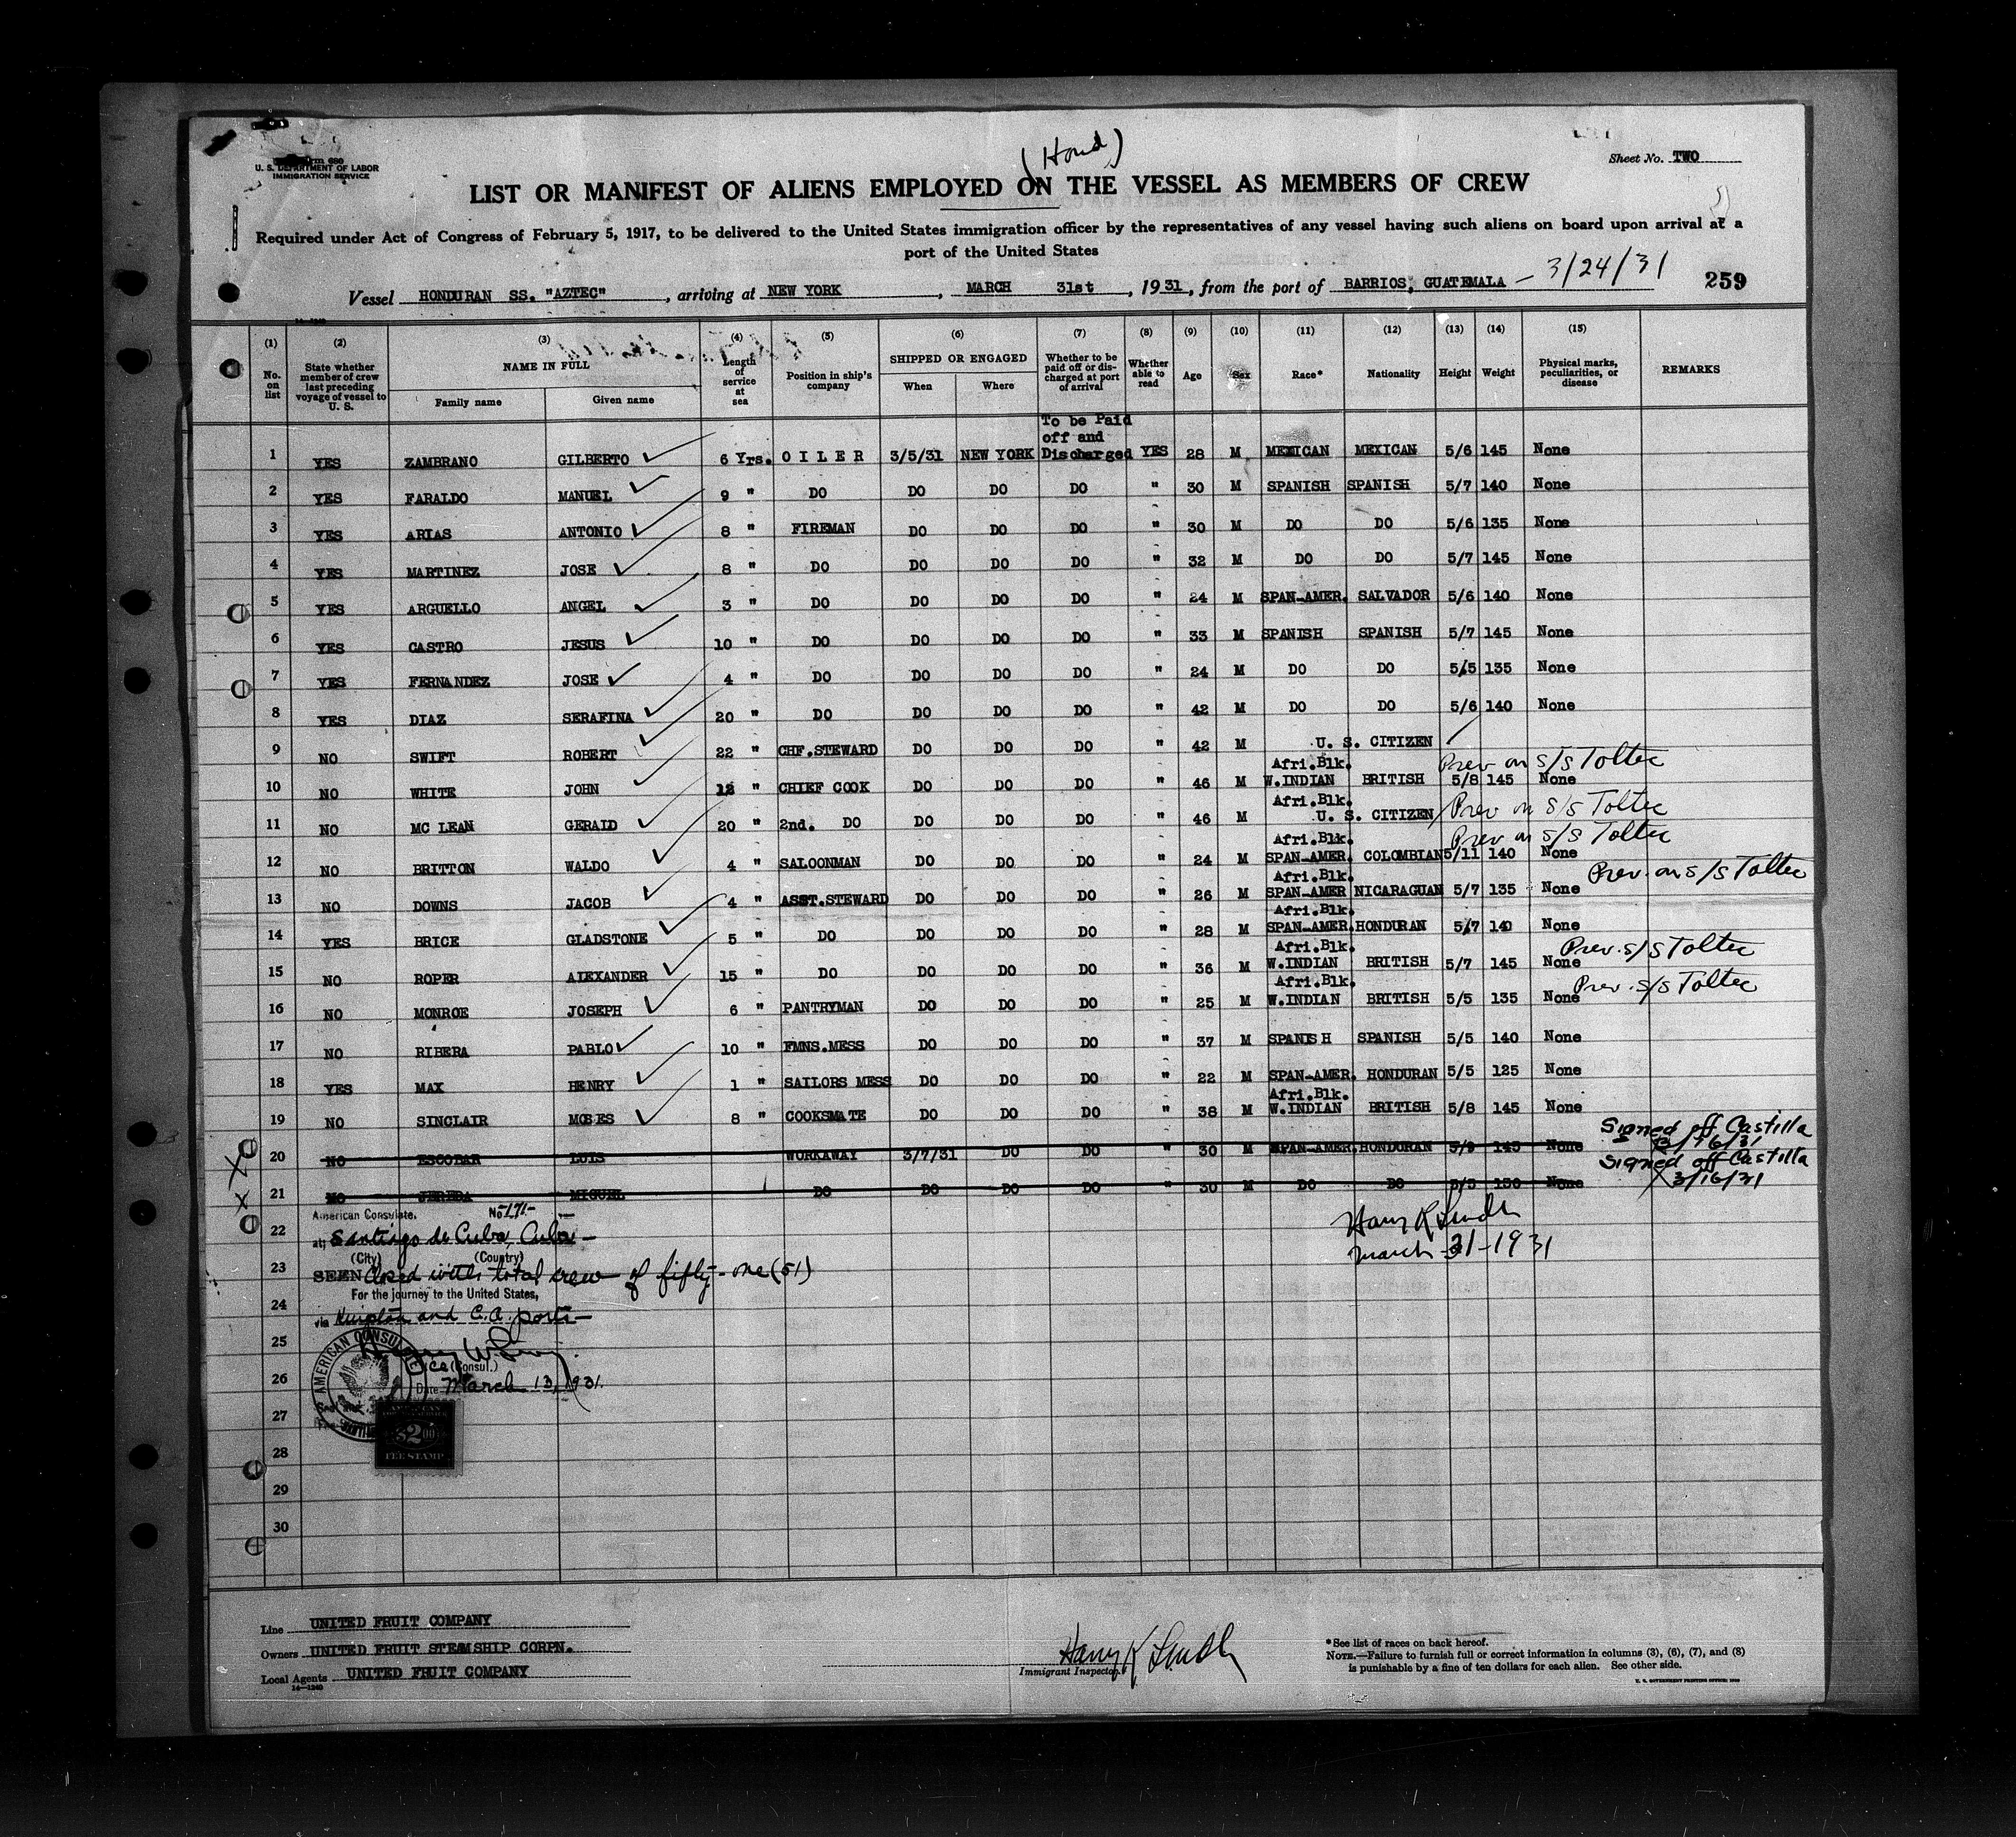 (Hond)
Sheet No. TWO
rm 680
U. S. DEPARTMENT OF LABOR
IMMIGRATION SERVICE
LIST OR MANIFEST OF ALIENS EMPLOYED ON THE VESSEL AS MEMBERS OF CREW
Required under Act of Congress of February 5, 1917, to be delivered to the United States immigration officer by the representatives of any vessel having such aliens on board upon arrival at a
port of the United States
Vessel HONDURAN SS. "AZTEC", arriving at NEW YORK, MARCH 31st, 1931, from the port of BARRIOS, GUATEMALA — 3/24/31 259
(1) (2) (3) (4) (5) (6) (7) (8) (9) (10) (11) (12) (13) (14) (15)
No. on list State whether member of crew last preceding voyage of vessel to U. S. NAME IN FULL Family name Given name Length of service at sea Position in ship's company SHIPPED OR ENGAGED When Where Whether to be paid off or discharged at port of arrival Whether able to read Age Sex Race* Nationality Height Weight Physical marks, peculiarities, or disease REMARKS
1 YES ZAMBRANO GILBERTO 6 Yrs. OILER 3/5/31 NEW YORK To be Paid off and Discharged YES 28 M MEXICAN MEXICAN 5/6 145 None
2 YES FARALDO MANUEL 9 " DO DO DO DO " 30 M SPANISH SPANISH 5/7 140 None
3 YES ARIAS ANTONIO 8 " FIREMAN DO DO DO " 30 M DO DO 5/6 135 None
4 YES MARTINEZ JOSE 8 " DO DO DO DO " 32 M DO DO 5/7 145 None
5 YES ARGUELLO ANGEL 3 " DO DO DO DO " 24 M SPAN-AMER. SALVADOR 5/6 140 None
6 YES CASTRO JESUS 10 " DO DO DO DO " 33 M SPANISH SPANISH 5/7 145 None
7 YES FERNANDEZ JOSE 4 " DO DO DO DO " 24 M DO DO 5/5 135 None
8 YES DIAZ SERAFINA 20 " DO DO DO DO " 42 M DO DO 5/6 140 None
9 NO SWIFT ROBERT 22 " CHF.STEWARD DO DO DO " 42 M U. S. CITIZEN
10 NO WHITE JOHN 12 " CHIEF COOK DO DO DO " 46 M Afri.Blk. W.INDIAN BRITISH 5/8 145 None Prev on s/s Toltec
11 NO MC LEAN GERALD 20 " 2nd. DO DO DO DO " 46 M Afri.Blk. U. S. CITIZEN Prev on s/s Toltec
12 NO BRITTON WALDO 4 " SALOONMAN DO DO DO " 24 M Afri.Blk. SPAN-AMER. COLOMBIAN 5/11 140 None Prev on s/s Toltec
13 NO DOWNS JACOB 4 " ASST.STEWARD DO DO DO " 26 M Afri.Blk. SPAN-AMER NICARAGUAN 5/7 135 None Prev. on s/s Toltec
14 YES BRICE GLADSTONE 5 " DO DO DO DO " 28 M Afri.Blk. SPAN-AMER. HONDURAN 5/7 140 None
15 NO ROPER ALEXANDER 15 " DO DO DO DO " 36 M Afri.Blk. W.INDIAN BRITISH 5/7 145 None Prev. s/s Toltec
16 NO MONROE JOSEPH 6 " PANTRYMAN DO DO DO " 25 M Afri.Blk. W.INDIAN BRITISH 5/5 135 None Prev. s/s Toltec
17 NO RIBERA PABLO 10 " FMNS.MESS DO DO DO " 37 M SPANISH SPANISH 5/5 140 None
18 YES MAX HENRY 1 " SAILORS MESS DO DO DO " 22 M SPAN-AMER. HONDURAN 5/5 125 None
19 NO SINCLAIR MOSES 8 " COOKSMATE DO DO DO " 38 M Afri.Blk. W.INDIAN BRITISH 5/8 145 None
20 NO ESCOBAR LUIS WORKAWAY 3/7/31 DO DO " 30 M SPAN-AMER. HONDURAN 5/9 145 None Signed off Castilla 3/16/31
21 NO JEREDA MIGUEL DO DO DO DO " 30 M DO DO 5/5 130 None Signed off Castilla 3/16/31
American Consulate. No 171
22 at Santiago de Cuba, Cuba
(City) (Country)
23 SEEN Closed with total crew of fifty-one (51)
For the journey to the United States,
24 via Kingston and C.A. ports
25
(Vice Consul.)
26 Date March 13, 1931.
AMERICAN CONSUL
27
$2.00
28 FEE STAMP
29
30
Harry K Lindh
March-31-1931
Line UNITED FRUIT COMPANY
Owners UNITED FRUIT STEAMSHIP CORPN.
Local Agents UNITED FRUIT COMPANY
14—1240
Harry K Lindh
Immigrant Inspector.
*See list of races on back hereof.
NOTE.—Failure to furnish full or correct information in columns (3), (6), (7), and (8)
is punishable by a fine of ten dollars for each alien. See other side.
U. S. GOVERNMENT PRINTING OFFICE: 1930